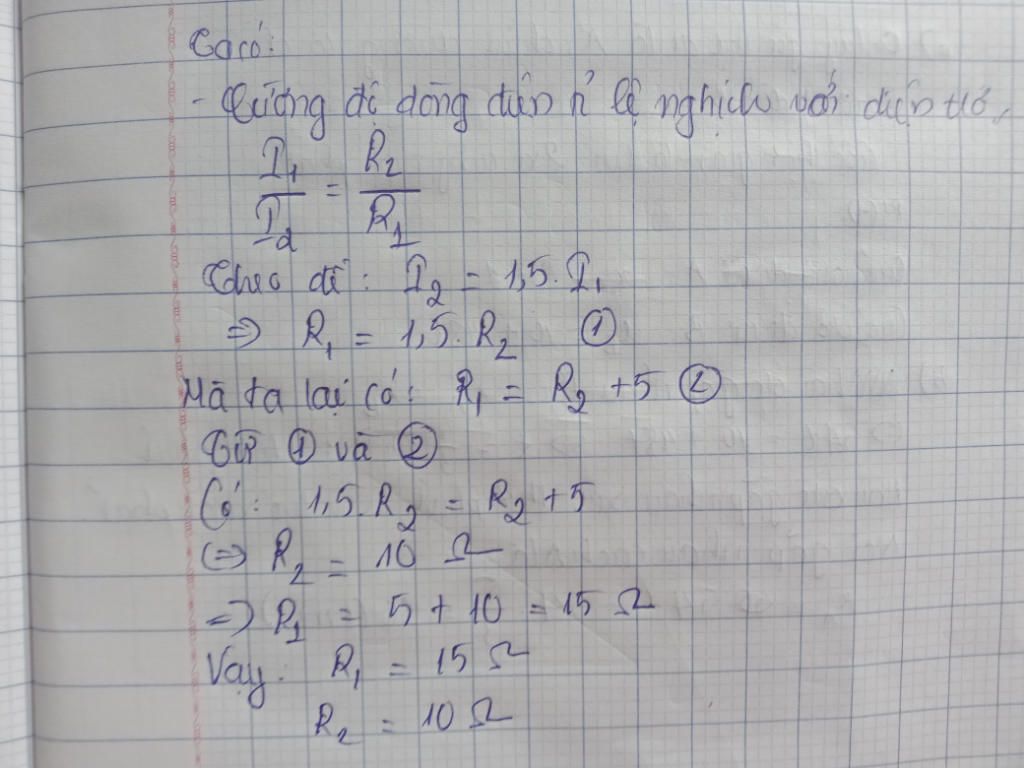 Ta có:
- Cường độ dòng điện tỉ lệ nghịch với điện trở.
I₁/I₂ = R₂/R₁
Theo đề: I₂ = 1,5. I₁
=> R₁ = 1,5. R₂ ①
Mà ta lại có: R₁ = R₂ + 5 ②
Từ ① và ②
Có: 1,5. R₂ = R₂ + 5
(=> R₂ = 10 Ω
=> R₁ = 5 + 10 = 15 Ω
Vậy: R₁ = 15 Ω
R₂ = 10 Ω